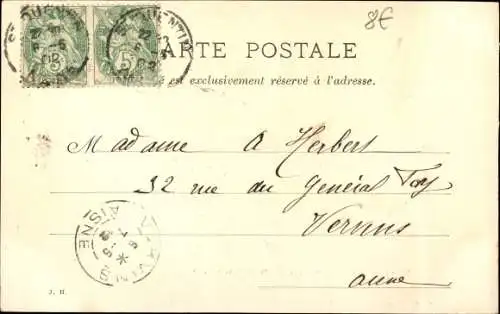 8€
CARTE POSTALE
est exclusivement réservé à l'adresse.
Madame A Herbert
32 rue du Général Foy
Vervins
Aisne
VERVINS
AISNE
J. H.